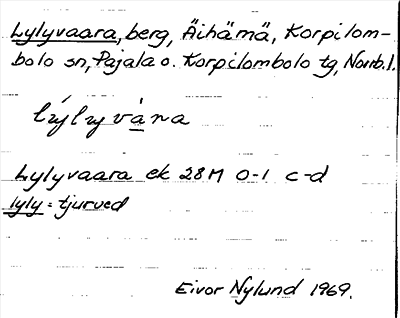 Lylyvaara, berg, Äihämä, Korpilom-
bolo sn, Pajala o. Korpilombolo tg, Norrb.l.
lýlyvāra
Lylyvaara ek 28M 0-1 c-d
lyly = tjurved
Eivor Nylund 1969.